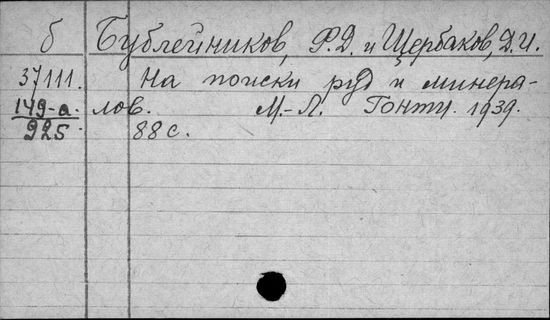 б Бублейников, Ф.Д. и Щербаков, Д.И.
37111. На поиски руд и минера-
149-а. лов. М.-Л. Гонти. 1939.
925 88 с.